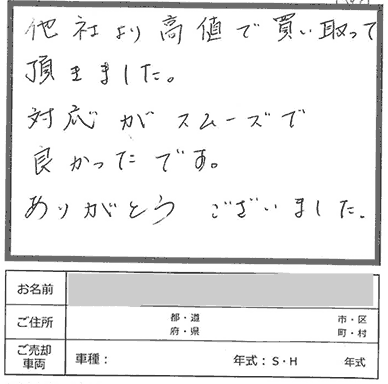 他社より高値で買い取って
頂きました。
対応がスムーズで
良かったです。
ありがとう ございました.
お名前
ご住所 都・道 府・県 市・区 町・村
ご売却車両 車種： 年式：S・H 年式